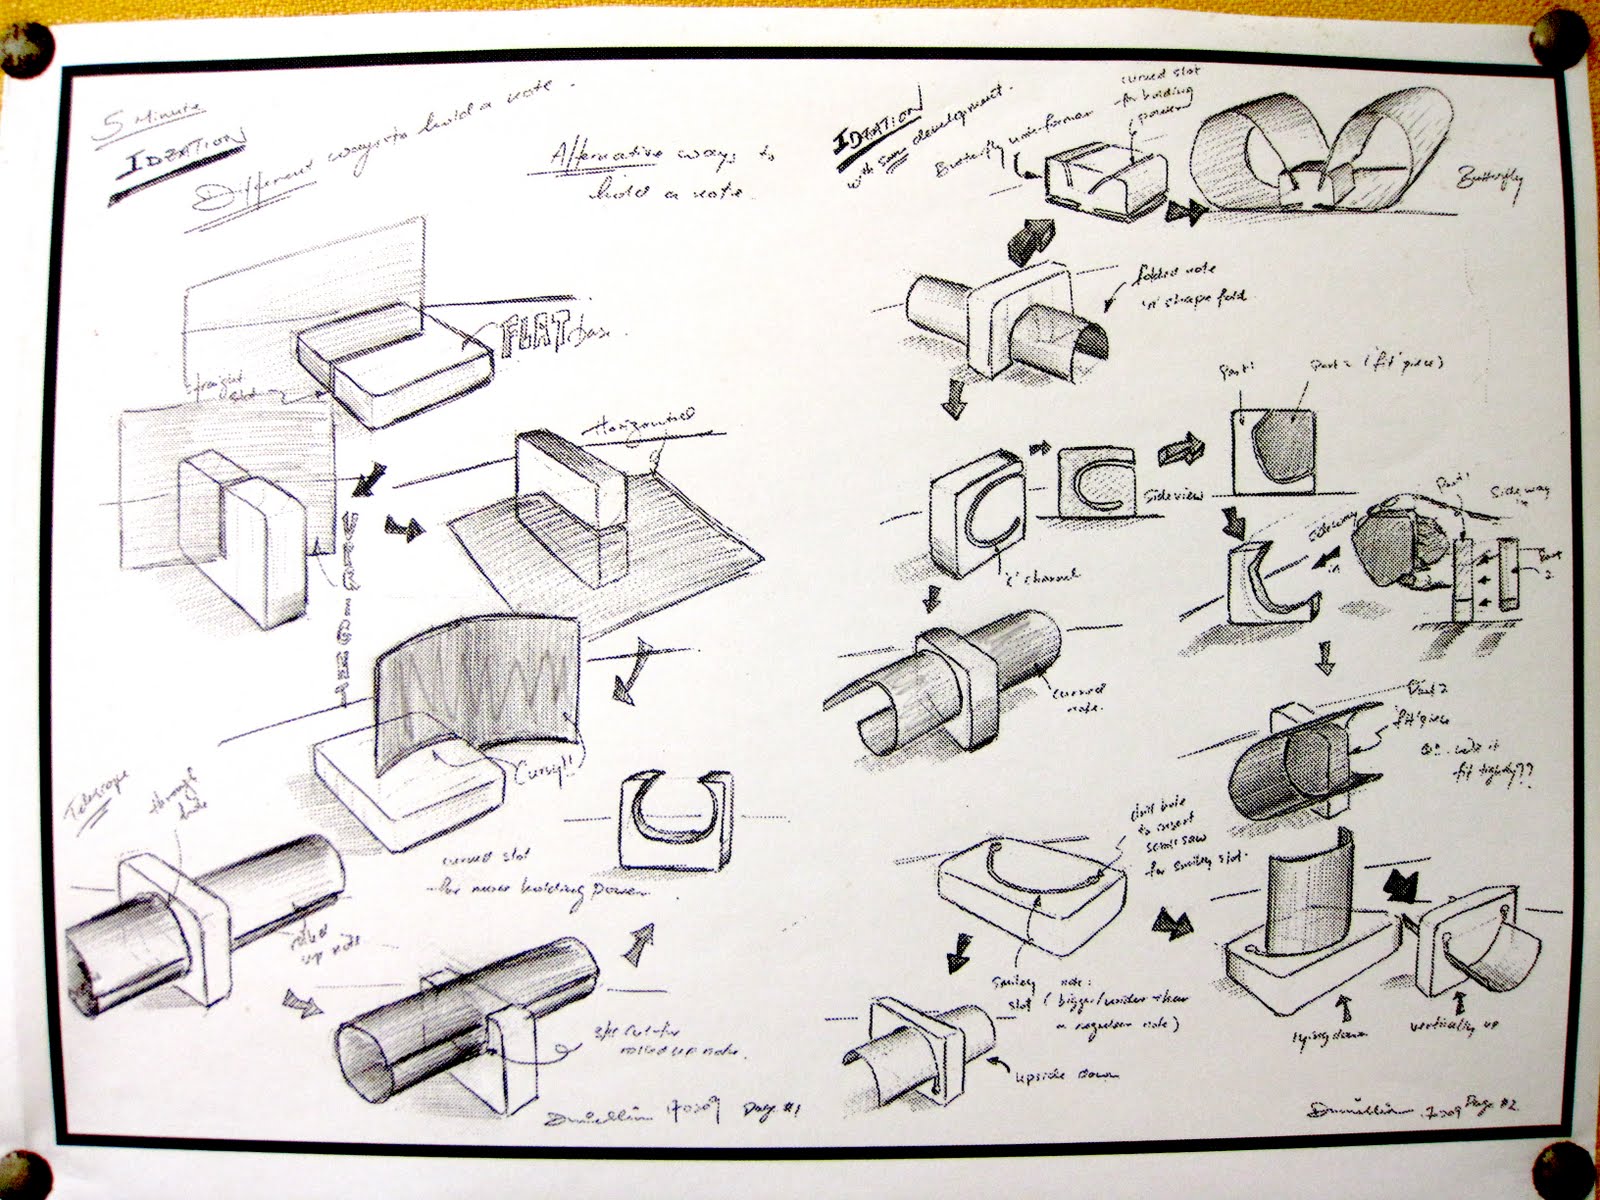 5 Minute
IDEATION
Different ways to hold a note.
Alternative ways to
hold a note.
FLAT base.
straight
slot
Horizontal
VERTICAL
Curvy!!
curved slot
for more holding power
Telescope
through
hole
rolled
up note
3/4 cut for
rolled up note.
170209 Page #1
IDEATION
with some development.
Butterfly
curved slot
for holding
power
Butterfly
folded note
'n' shape fold.
Part 1
Part 2 ('fit' piece)
Side view
'C' channel
Part 1
Side way
Sideway
in
Part
2
curved
note.
Part 2
'fit' piece
will it
fit tightly??
drill hole
to insert
scroll saw
for smiley slot.
Smiley note:
slot (bigger/wider than
a regular note)
lying down
vertically up
upside down
170209 Page #2